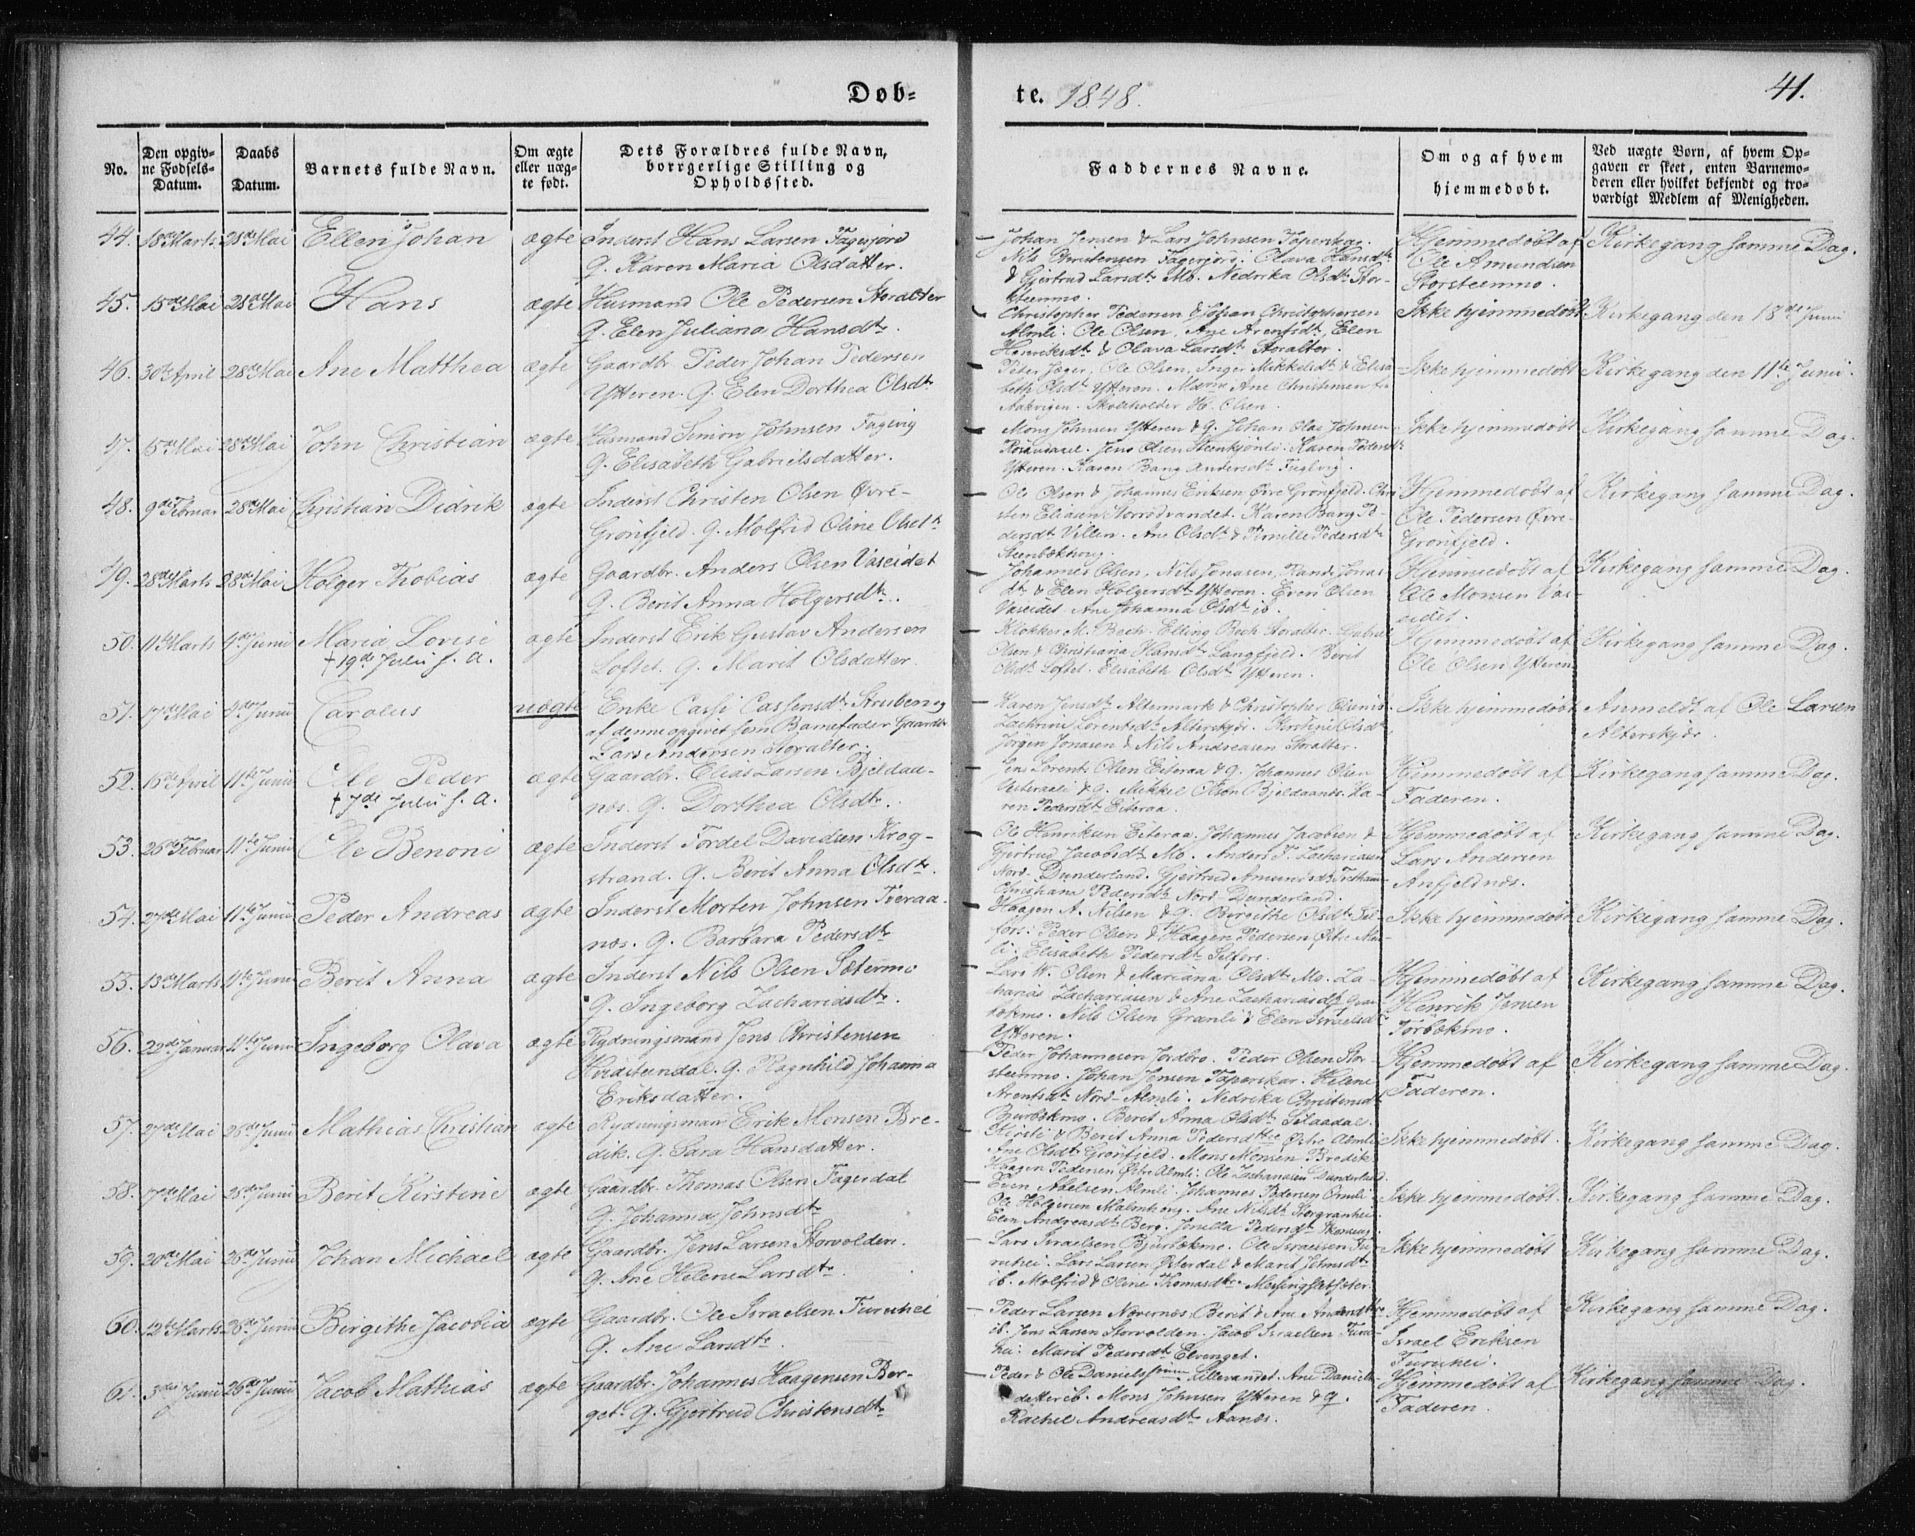 Døb-
te. 1848.
41.
No.
Den opgiv-
ne Fødsels-
Datum.
Daabs
Datum.
Barnets fulde Navn.
Om ægte
eller uæg-
te født.
Dets Forældres fulde Navn,
borrgerlige Stilling og
Opholdssted.
Faddernes Navne.
Om og af hvem
hjemmedøbt.
Ved uægte Børn, af hvem Op-
gaven er skeet, enten Barnemo-
deren eller hvilket bekjendt og tro-
værdigt Medlem af Menigheden.
44. 18de Marts 28de Mai Ellen Johan ægte Inderst Hans Larsen Fagerjord
G. Karen Maria Olsdatter.
Johan Jensen & Lars Johnsen Taperskar.
Nils Christensen Fagerjord. Olava Hansdtr
& Gjertrud Larsdtr Mo. Nedrika Olsdtr Stor-
steenmo.
Hjemmedøbt af
Ole Amundsen
Storsteenmo.
Kirkegang samme Dag.
45. 15de Mai 28de Mai Hans ægte Husmand Ole Pedersen Storalter
G. Elen Juliana Hansdtr.
Christopher Pedersen & Johan Christophersen
Almli. Ole Olsen, Ane Arentsdtr, Elen
Henriksdtr & Olava Larsdtr Storalter.
Ikke hjemmedøbt
Kirkegang den 18de Juni
46. 30te April 28de Mai Ane Matthea ægte Gaardbr. Peder Johan Pedersen
Ytteren. G. Elen Dorthea Olsdtr
Peter Jæger, Ole Olsen, Inger Mikkelsdtr & Elisa-
beth Olsdtr Ytteren. Ane Christensen
Skoleholder H. Olsen.
Ikke hjemmedøbt
Kirkegang den 11te Junii.
47. 15de Mai 28de Mai John Christian ægte Husmand Simon Johnsen Fuglvig
G. Elisabeth Gabrielsdatter.
Mons Johnsen Ytteren & G. Johan Olai Johnsen
Jens Olsen Karen Pedersdtr
Ytteren. Karen Bang Andersdtr Fuglvig.
Ikke hjemmedøbt
Kirkegang samme Dag.
48. 9de Februar 28de Mai Christian Didrik ægte Inderst Christen Olsen Øvre-
Grønfjeld. G. Molfrid Oline Olsdtr
Ole Olsen & Johannes Eriksen Øvre Grønfjeld. Chri-
sten Eliasen Storrødvandet. Karen Bang Pe-
dersdtr Villen. Ane Olsdtr & Pernille Pedersdtr
Steenbækhoug.
Hjemmedøbt af
Ole Pedersen Øvre-
Grønfjeld.
Kirkegang samme Dag.
49. 28de Marts 28de Mai Holger Thobias ægte Gaardbr. Anders Olsen Vaseidet
G. Berit Anna Holgersdtr.
Johannes Olsen, Nils Jonasen, Randi Jonas-
dtr & Elen Holgersdtr Ytteren. Even Olsen
Vaseidet. Ane Johanna Olsdtr ib.
Hjemmedøbt af
Ole Monsen Vas-
eidet.
Kirkegang samme Dag.
50. 11te Marts 4de Junii Maria Lovise ægte Inderst Erik Gustav Andersen
+ 19de Julii s. A.
Loftet. G. Marit Olsdatter.
Klokker M. Bech. Elling Bech Storalter. Gabriel
Olsen & Christiana Hansdtr Langfjeld. Berit
Olsdtr Loftet. Elisabeth Olsdtr Ytteren.
Hjemmedøbt af
Ole Olsen Ytteren
Kirkegang samme Dag.
51. 17de Mai 4de Junii Carolus uægte Enke Cassi Strubens og
af denne opgivet som Barnefader Gaardbr
Lars Andersen Storalter.
Karen Jensdtr Altermark & Christopher
Lorentsdtr Alterskjær. Kirstine Olsdtr
Jørgen Jonasen & Nils Andreasen Storalter.
Ikke hjemmedøbt
Anmeldt af Ole Larsen
Alterskjær.
52. 16de April 11te Junii Ole Peder ægte Gaardbr. Elias Larsen Bjeldaa-
+ 7de Julii s. A.
nes. G. Dorthea Olsdtr.
Jens Lorents Olsen Eiteraa & G. Johannes Olsen
& G. Mikkel Olsen Bjeldaanes. Ka-
ren Pedersdtr Eiteraa.
Hjemmedøbt af
Faderen.
Kirkegang samme Dag.
53. 26de Februar 11te Junii Ole Benoni ægte Inderst Tordel Davidsen Krog-
strand. G. Berit Anna Olsdtr.
Ole Henriksen Eiteraa. Johannes Jacobsen &
Gjertrud Jacobsdtr Mo. Anders J. Zachariasen
Nord-Dunderland. Gjertrud Amundsdtr
Christiana Pedersdtr Nord-Dunderland.
Hjemmedøbt af
Lars Andersen
Anfjeldnes.
Kirkegang samme Dag.
54. 27de Mai 11te Junii Peder Andreas ægte Inderst Morten Johnsen Tveraa-
næs. G. Barbara Pedersdtr
Haagen A. Nilsen & G. Birgithe Olsdtr Sel-
fors. Peder Olsen & Haagen Pedersen Østre Alm-
li. Elisabeth Pedersdtr Selfors.
Ikke hjemmedøbt
Kirkegang samme Dag.
55. 13de Marts 11te Junii Berit Anna ægte Inderst Nils Olsen Sætermo
G. Ingeborg Zachariasdtr.
Lars W. Olsen & Mariana Olsdtr Mo. Za-
charias Zachariasen & Ane Zachariasdtr
Nils Olsen Grønli & Elen Israelsdtr
Ytteren.
Hjemmedøbt af
Henrik Jensen
Torbækmo.
Kirkegang samme Dag.
56. 22de Januar 11te Junii Ingeborg Olava ægte Rydningsmand Jens Christensen
Hvidsteendal. G. Ragnhild Johanna
Eriksdatter.
Peder Johannesen Jordbro. Peder Olsen Stor-
steenmo. Johan Jensen Taperskar. Helene
Arentsdtr Nord-Almli. Nedrika Christensdtr
Bjurbækmo. Berit Anna Olsdtr
Hjemmedøbt af
Faderen.
Kirkegang samme Dag.
57. 27de Mai 25de Junii Mathias Christian ægte Rydningsman Erik Monsen Bre-
dik. G. Sara Hansdatter.
Kirsti & Berit Anna Pedersdttre Østre Almli
Ane Olsdtr Grønfjeld. Mons Monsen Bredik
Haagen Pedersen Østre Almli. Ole Zachariasen Dunderland
Ikke hjemmedøbt.
Kirkegang samme Dag.
58. 17de Mai 25de Junii Berit Kirstine ægte Gaardbr. Thomas Olsen Fagerdal
G. Johanna Johnsdtr
Even Abelsen Almli. Johannes Pedersen Ørnli.
Ole Holgersen Malmhoug. Ane Nilsdtr Storgranhei
Elen Andreasdtr Berg. Jonetta Pedersdtr Skonseng
Ikke hjemmedøbt.
Kirkegang samme Dag.
59. 20de Mai 26de Junii Johan Michael ægte Gaardbr. Jens Larsen Storvolden.
G. Ane Helene Larsdtr.
Lars Israelsen Bjurbækmo. Ole Israelsen Fu-
ruhei. Lars Larsen Østerdal & Marit Johnsdtr
ib. Molfrid & Oline Thomasdtre Messingsletsæter.
Ikke hjemmedøbt
Kirkegang samme Dag.
60. 12te Marts 26de Junii Birgithe Jacobia ægte Gaardbr. Ole Israelsen Furuhei
G. Ane Larsdtr.
Peder Larsen Nævernæs. Berit & Ane Andersdttre
ib. Jens Larsen Storvolden. Jacob Israelsen Furu-
hei. Marit Pedersdtr Elvenget.
Hjemmedøbt af
Israel Eriksen
Furuhei.
Kirkegang samme Dag.
61. 3die Junii 26de Junii Jacob Mathias ægte Gaardbr. Johannes Haagensen Ber-
get. G. Gjertrud Christensdtr
Peder & Ole Danielssønner Lillevandet. Ane Daniels-
datter ib. Mons Johnsen Ytteren & G.
Rachel Andreasdtr Aanes.
Hjemmedøbt af
Faderen.
Kirkegang samme Dag.